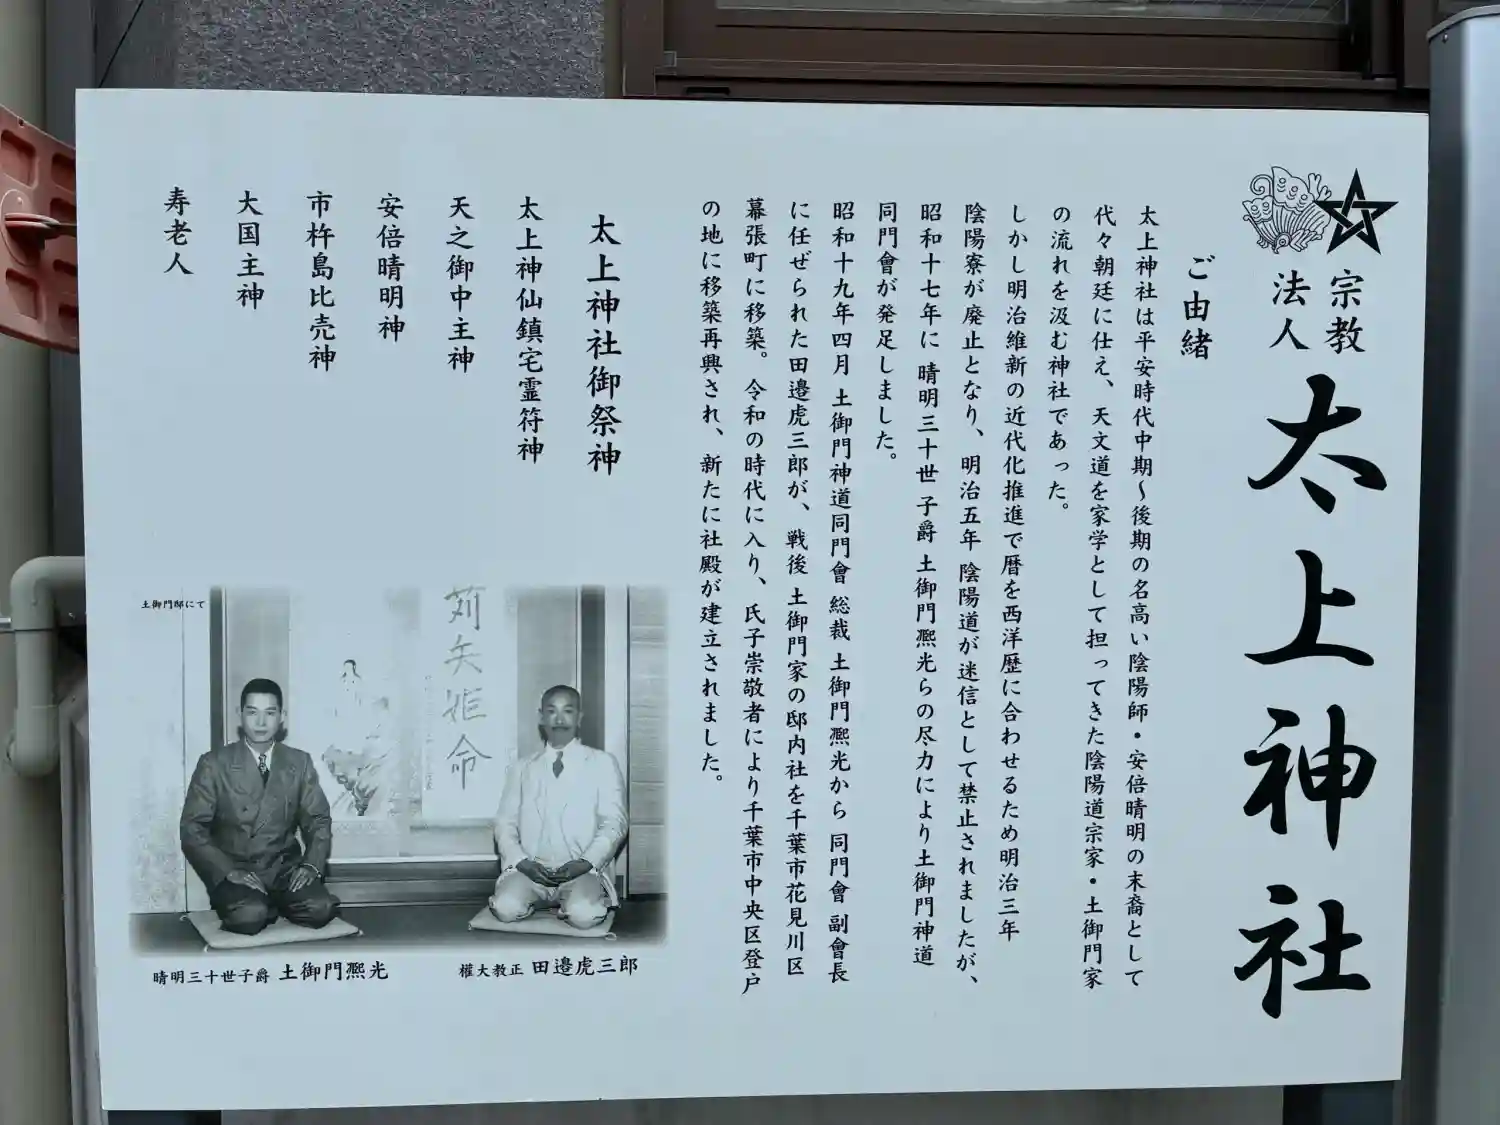 宗教
法人
太上神社
ご由緒
太上神社は平安時代中期〜後期の名高い陰陽師・安倍晴明の末裔として
代々朝廷に仕え、天文道を家学として担ってきた陰陽道宗家・土御門家
の流れを汲む神社であった。
しかし明治維新の近代化推進で暦を西洋歴に合わせるため明治三年
陰陽寮が廃止となり、明治五年 陰陽道が迷信として禁止されましたが、
昭和十七年に 晴明三十世 子爵 土御門凞光らの尽力により土御門神道
同門會が発足しました。
昭和十九年四月 土御門神道同門會 総裁 土御門凞光から 同門會 副會長
に任ぜられた田邉虎三郎が、戦後 土御門家の邸内社を千葉市花見川区
幕張町に移築。令和の時代に入り、氏子崇敬者により千葉市中央区登戸
の地に移築再興され、新たに社殿が建立されました。
太上神社御祭神
太上神仙鎮宅霊符神
天之御中主神
安倍晴明神
市杵島比売神
大国主神
寿老人
土御門邸にて
苅矢姫命
權大教正 田邉虎三郎
晴明三十世子爵 土御門凞光